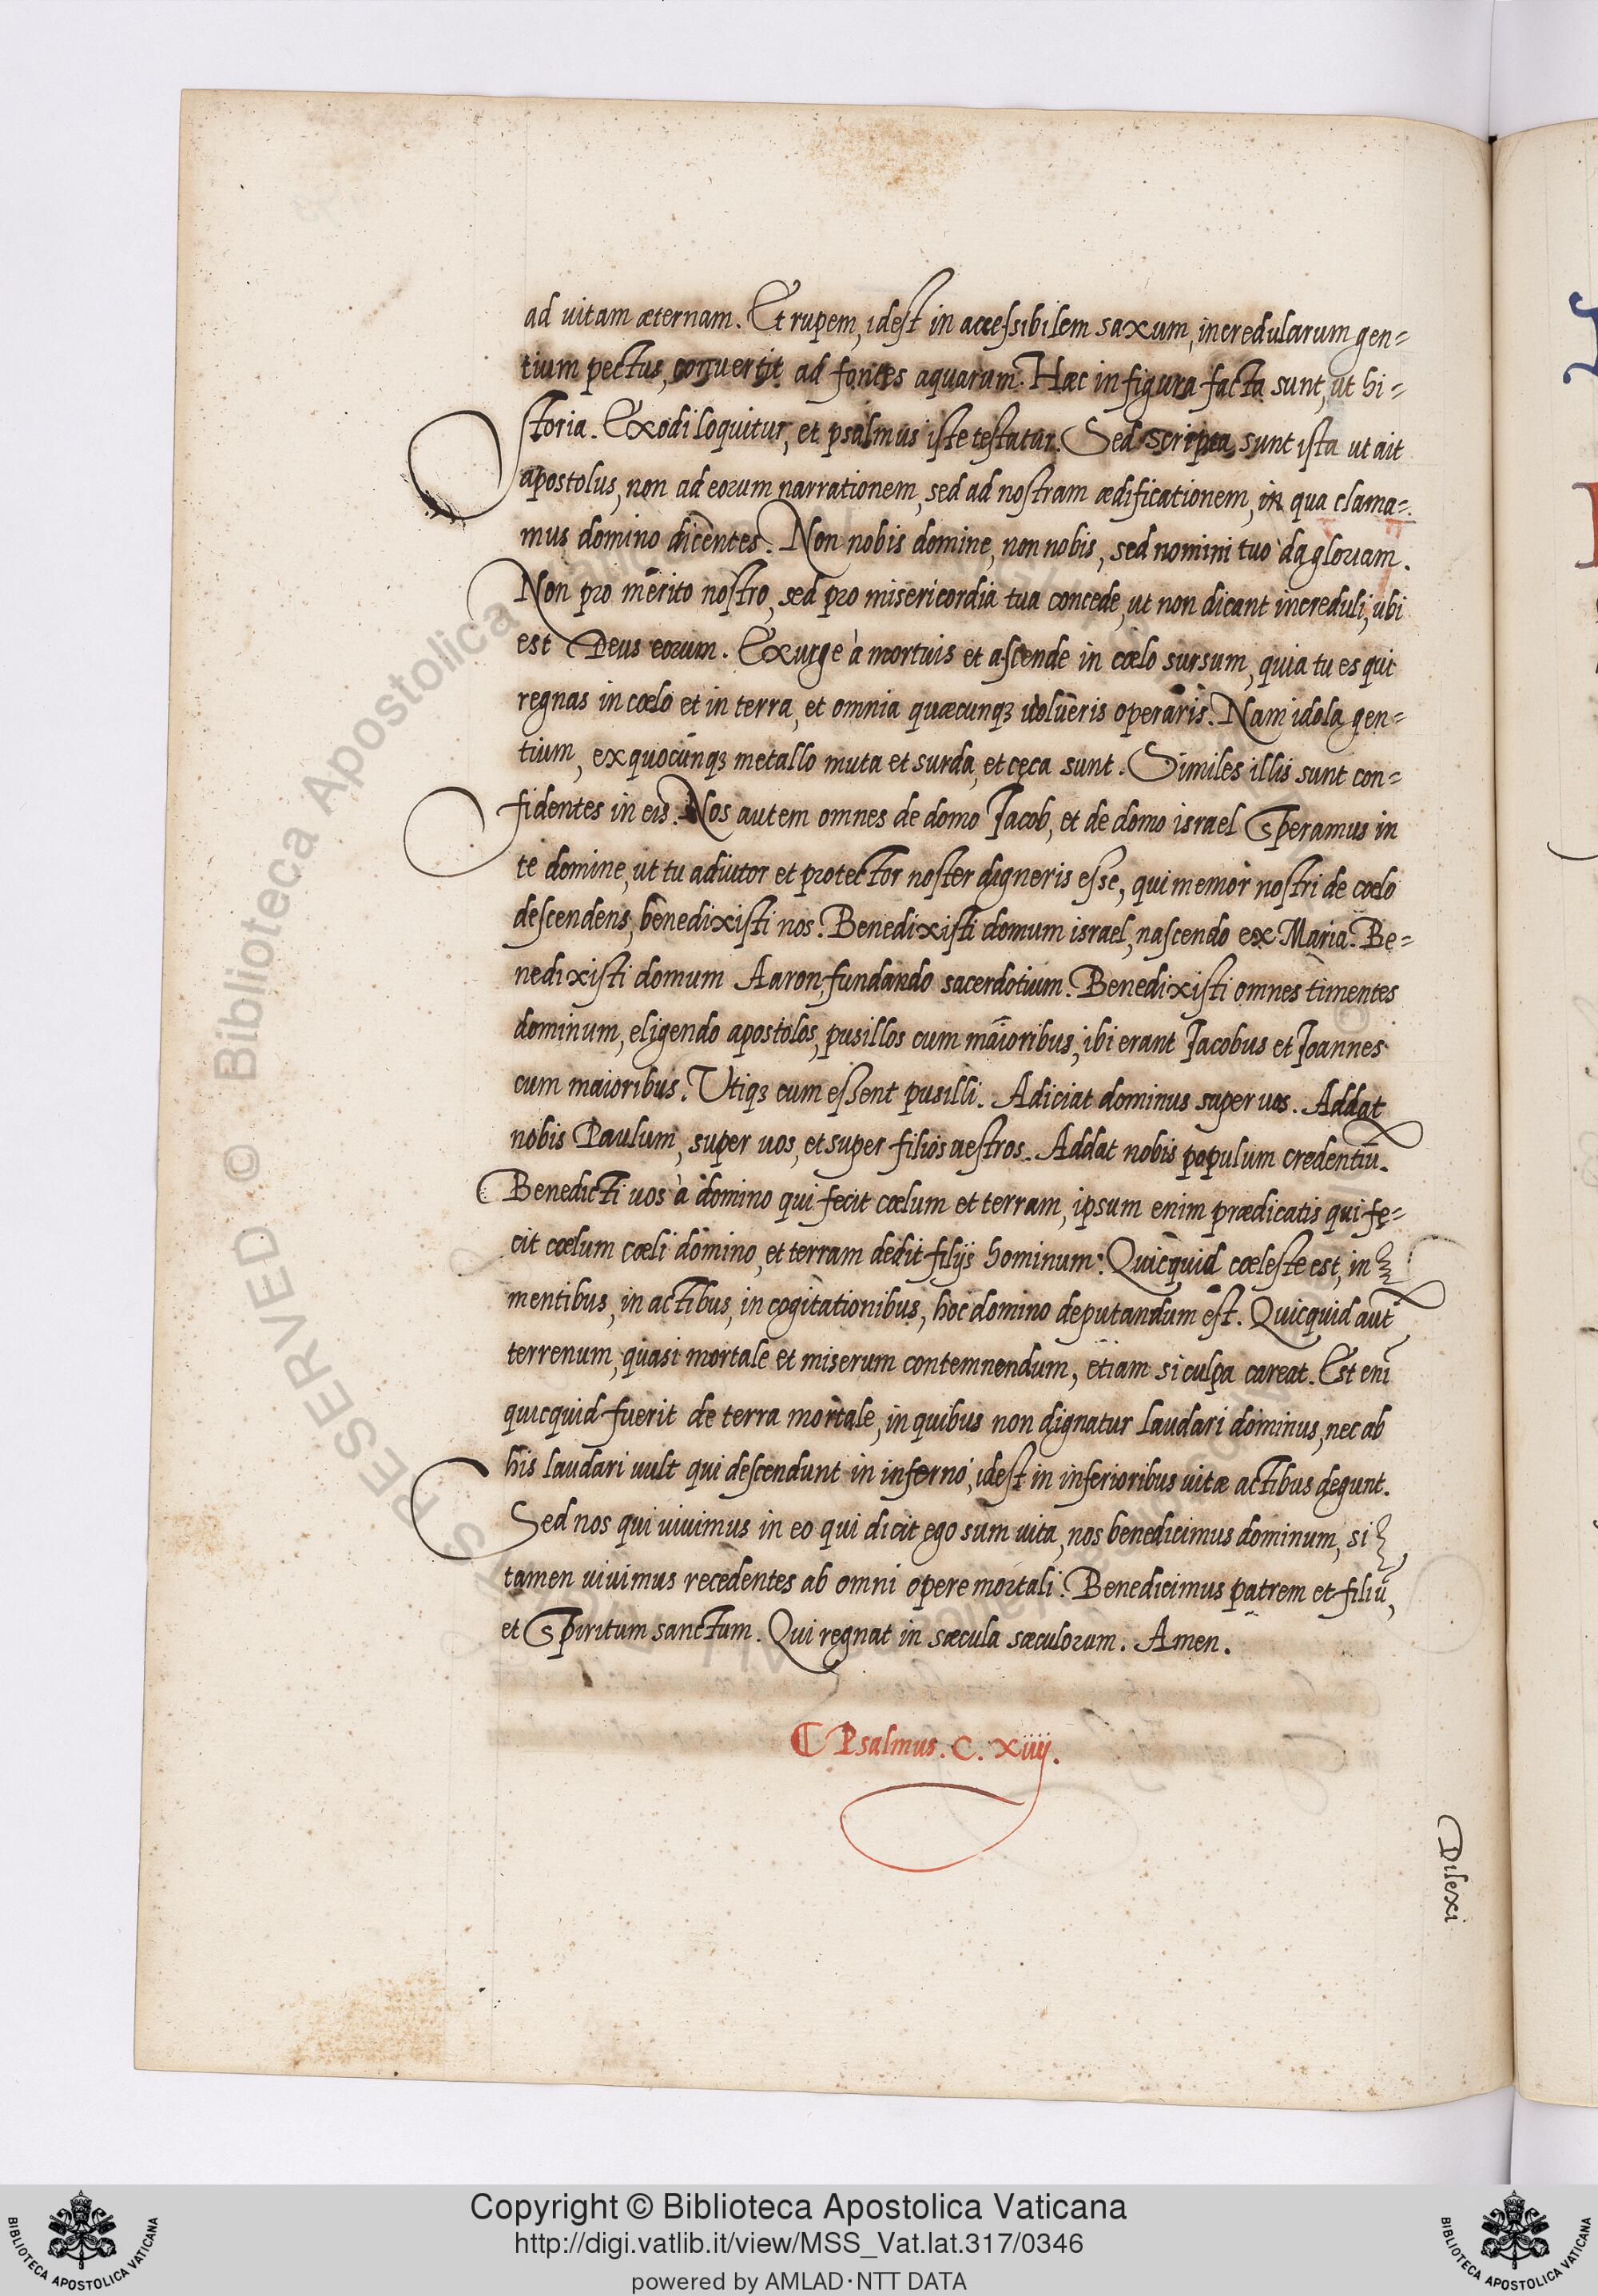 ad uitam æternam. Et rupem, idest in accessibilem saxum, incredularum gen=
tium pectus, conuertit ad fontes aquarum. Hæc in figura facta sunt, ut hi=
storia. Exodi loquitur, et psalmus iste testatur. Sed scripta sunt ista ut ait
apostolus, non ad eorum narrationem, sed ad nostram ædificationem, in qua clama=
mus domino dicentes. Non nobis domine, non nobis, sed nomini tuo da gloriam.
Non pro merito nostro, sed pro misericordia tua concede, ut non dicant increduli, ubi
est Deus eorum. Exurge à mortuis et ascende in cœlo sursum, quia tu es qui
regnas in cœlo et in terra, et omnia quæcunqꝫ uolueris operaris. Nam idola gen=
tium, ex quocunqꝫ metallo muta et surda, et cęca sunt. Similes illis sunt con=
fidentes in eis. Nos autem omnes de domo Jacob, et de domo israel speramus in
te domine, ut tu adiutor et protector noster digneris esse, qui memor nostri de cœlo
descendens, benedixisti nos. Benedixisti domum israel, nascendo ex Maria. Be=
nedixisti domum Aaron, fundando sacerdotium. Benedixisti omnes timentes
dominum, eligendo apostolos, pusillos cum maioribus, ibi erant Jacobus et Joannes
cum maioribus. Utiqꝫ cum essent pusilli. Adiciat dominus super uos. Addat
nobis Paulum, super uos, et super filios uestros. Addat nobis populum credentiū.
Benedicti uos à domino qui fecit cœlum et terram, ipsum enim prædicatis qui fe=
cit cœlum cœli domino, et terram dedit filijs hominum. Quicquid cœleste est, in
mentibus, in actibus, in cogitationibus, hoc domino deputandum est. Quicquid aut̄
terrenum, quasi mortale et miserum contemnendum, etiam si culpa careat. Est eni̅
quicquid fuerit de terra mortale, in quibus non dignatur laudari dominus, nec ab
his laudari uult qui descendunt in inferno, idest in inferioribus uitæ actibus degunt.
Sed nos qui uiuimus in eo qui dicit ego sum uita, nos benedicimus dominum, si
tamen uiuimus recedentes ab omni opere mortali. Benedicimus patrem et filiū,
et spiritum sanctum. Qui regnat in sæcula sæculorum. Amen.
Psalmus. C. Xiiij.
Dilexi
Copyright © Biblioteca Apostolica Vaticana
http://digi.vatlib.it/view/MSS_Vat.lat.317/0346
powered by AMLAD·NTT DATA
BIBLIOTECA APOSTOLICA VATICANA
BIBLIOTECA APOSTOLICA VATICANA